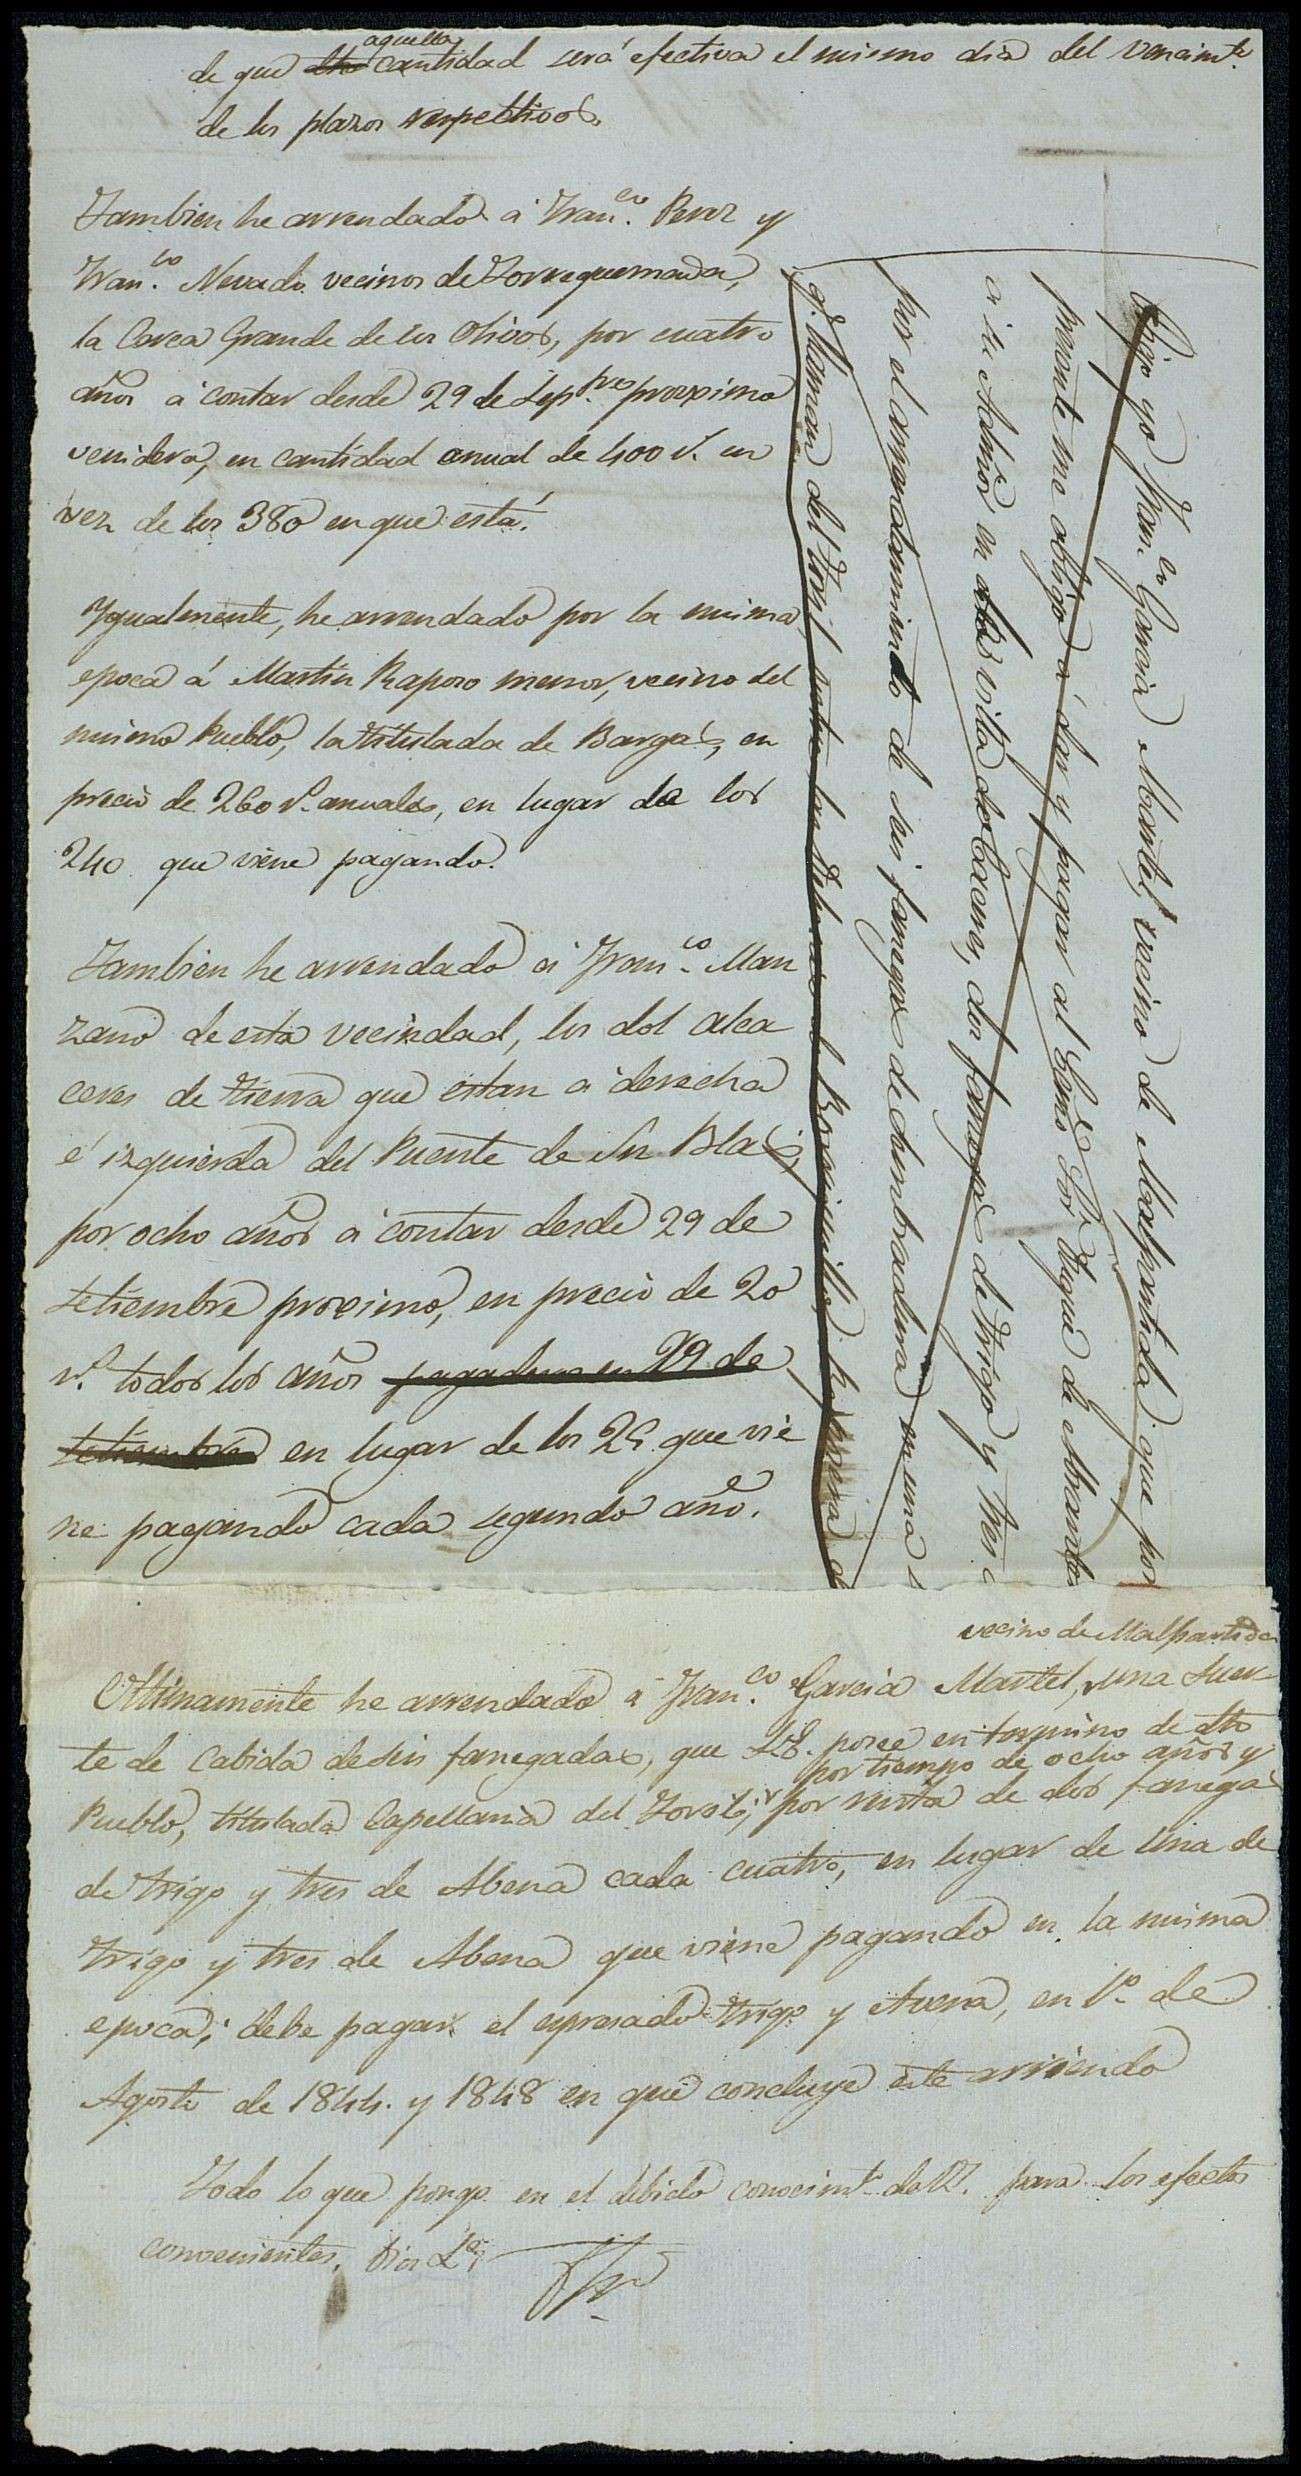 de que dha aquella cantidad será efectiva el mismo dia del vencimto.
de los plazos respectivos.
Tambien he arrendado á Franco. Perez y
Franco. Nevado vecinos de Torrequemada,
la Cerca Grande de los Olivos, por cuatro
años á contar desde 29 de Sepbre. proxima
venidera, en cantidad anual de 400 r. en
vez de los 380 en que está.
Ygualmente, he arrendado por la misma
epoca á Martin Raposo menor, vecino del
mismo Pueblo, la titulada de Bargas, en
precio de 260 rs. anuales, en lugar de los
240 que viene pagando.
Tambien he arrendado á Franco. Man
zano de esta vecindad, los dos alca
ceres de tierra que estan á derecha
é izquierda del Puente de Sn Blas,
por ocho años á contar desde 29 de
setiembre proximo, en precio de 20
rs. todos los años pagaderos en 29 de
setiembre en lugar de los 25 que vie
ne pagando cada segundo año.
Digo yo Franco. Garcia Martel, vecino de Malpartida que por
presente me obligo á dar y pagar al Exmo Sor. Duque de Abrantes
a su Admor en esta villa de Caceres, dos fanegas de trigo y tres
por el arrendamiento de seis fanegas de sembradura en una
q. llaman del Toril
vecino de Malpartida
Ultimamente he arrendado á Franco. Garcia Martel, una suer-
te de cabida de seis fanegadas, que S.E. posee en termino de dho
por tiempo de ocho años y
Pueblo, titulada Capellania del Toril, por renta de dos fanegas
de trigo y tres de Abena cada cuatro, en lugar de una de
trigo y tres de Abena que viene pagando en la misma
epoca; debe pagar el espresado trigo y Avena, en 1o. de
Agosto de 1844. y 1848 en que concluye este arriendo
Todo lo que pongo en el debido conocimto. de V. para los efectos
convenientes. Dios